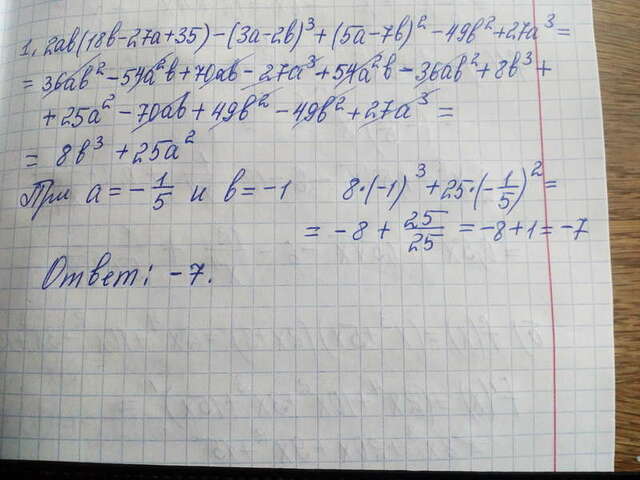 1. 2ab(18b-27a+35)-(3a-2b)³+(5a-7b)²-49b²+27a³=
=36ab²-54a²b+70ab-27a³+54a²b-36ab²+8b³+
+25a²-70ab+49b²-49b²+27a³=
=8b³+25a²
При a=-1/5 и b=-1 8·(-1)³+25·(-1/5)²=
=-8+25/25=-8+1=-7
Ответ: -7.